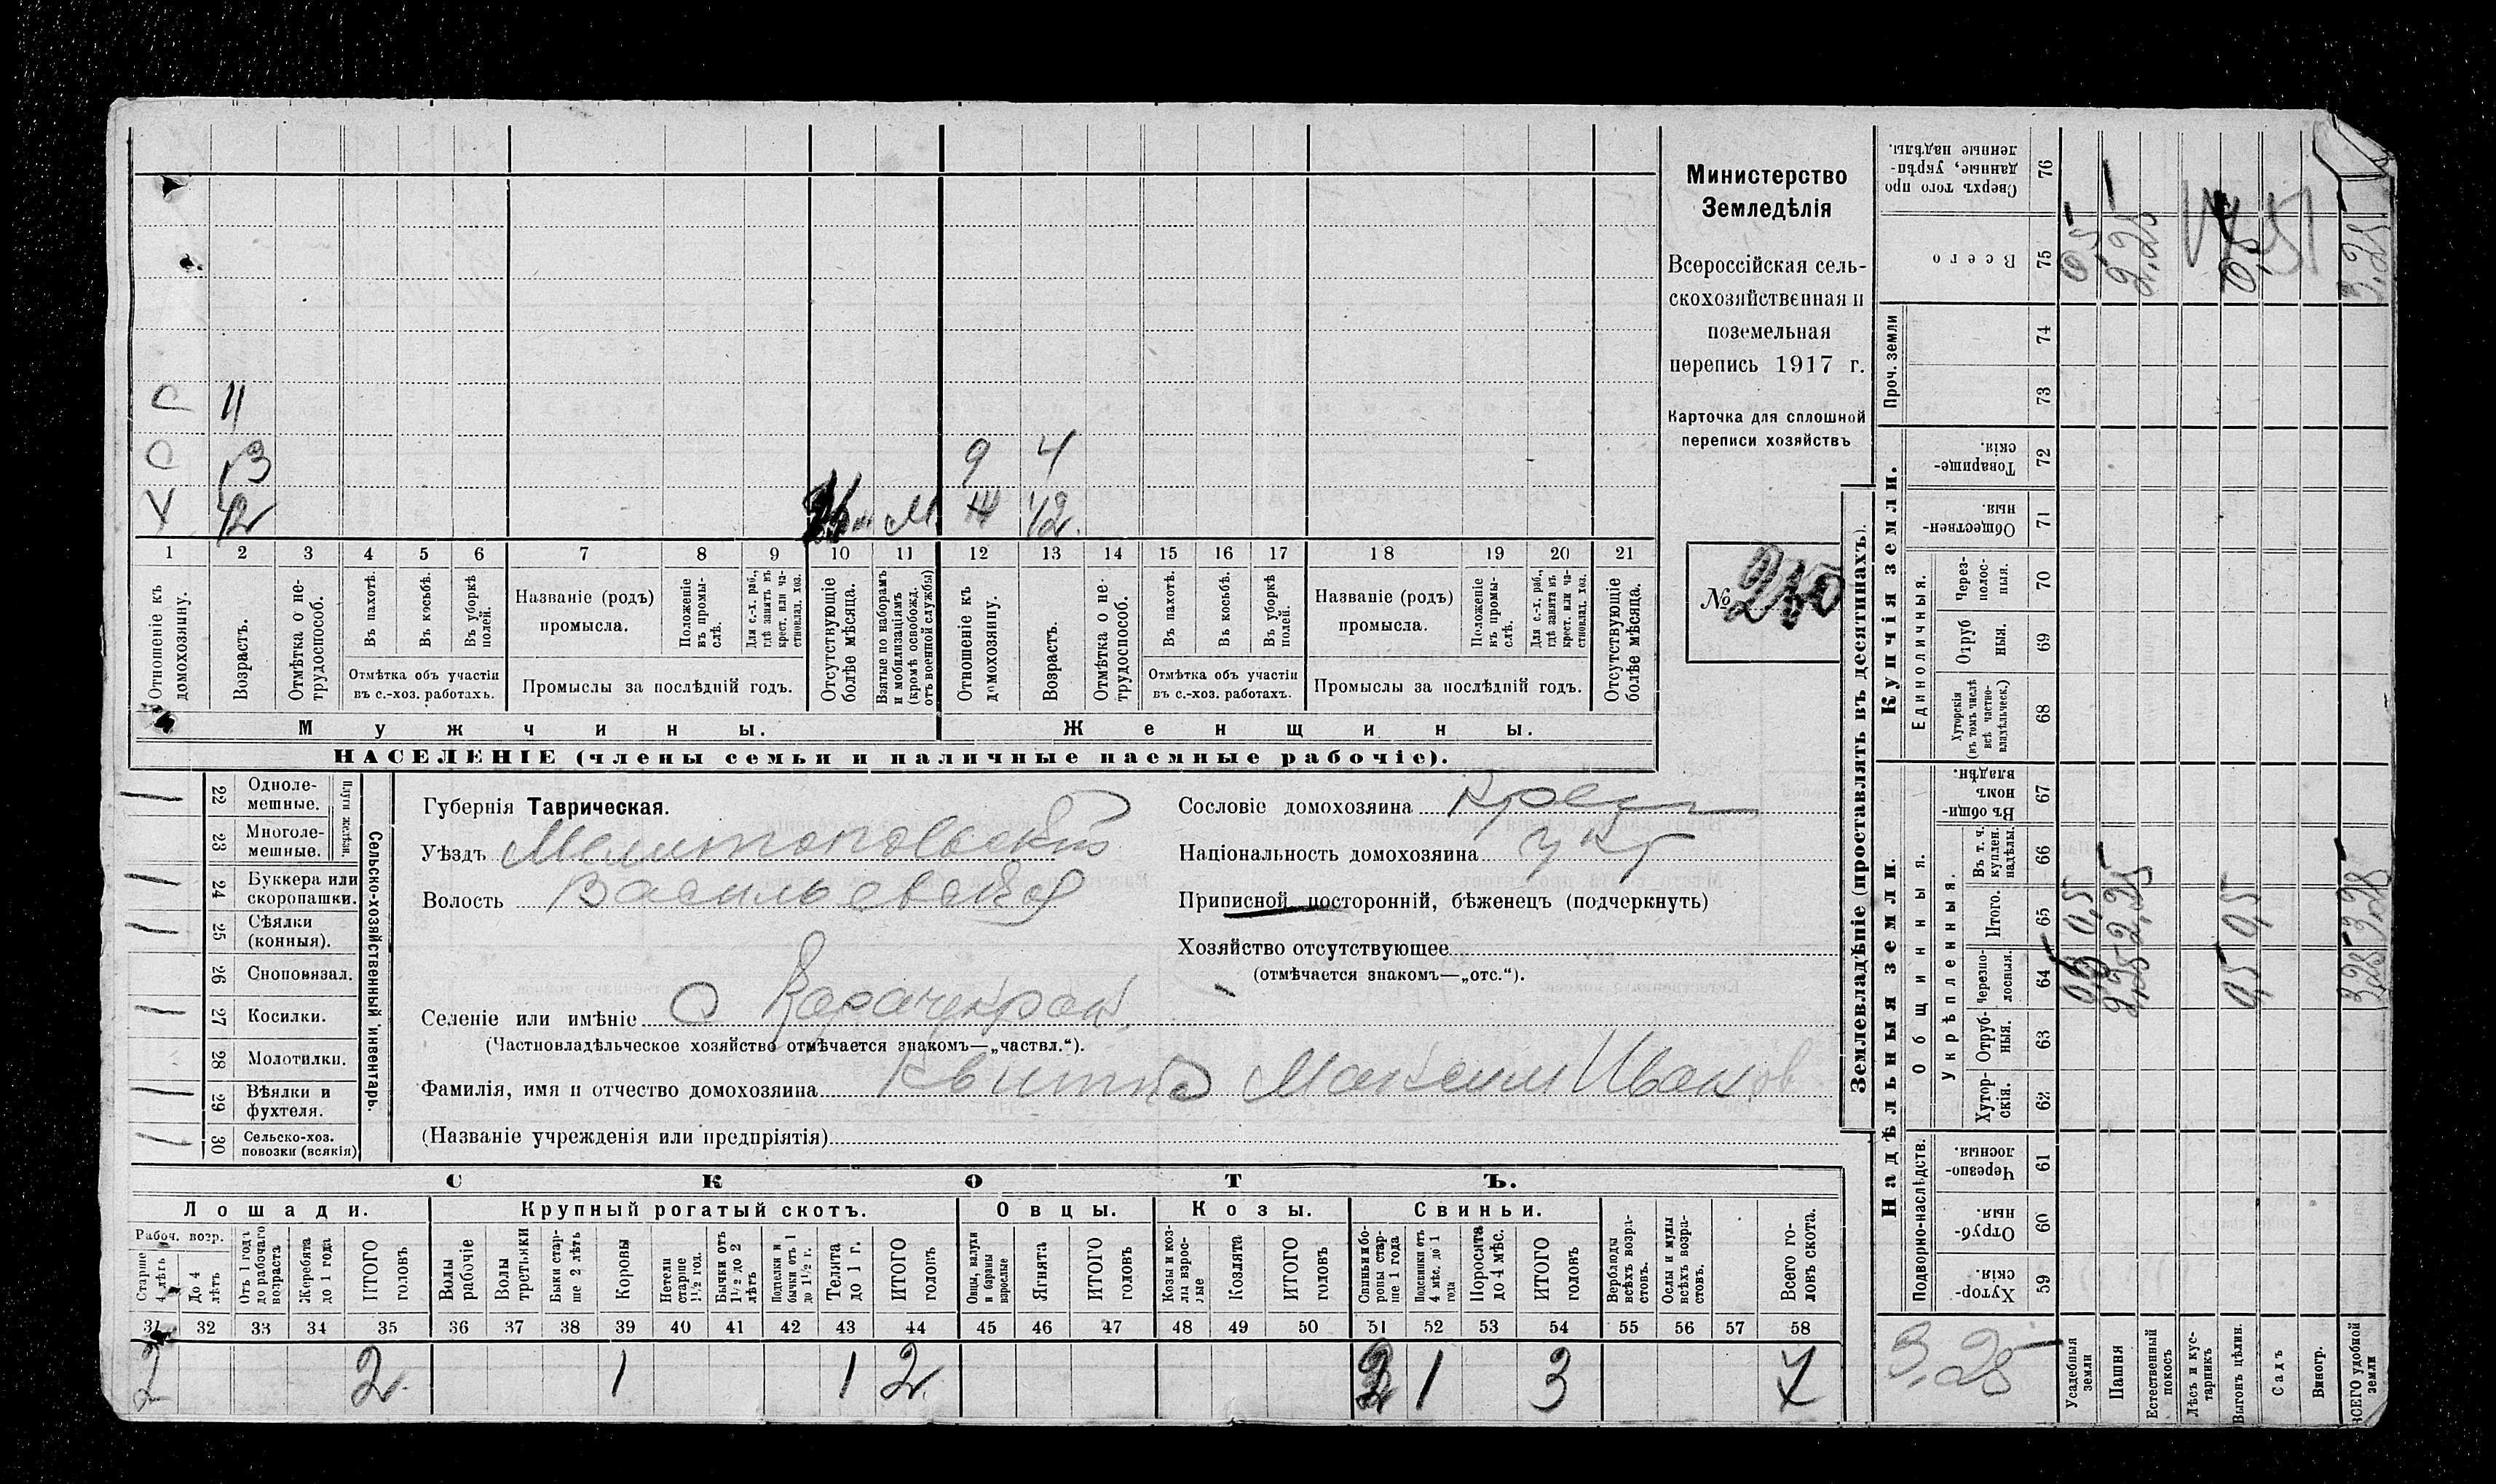 С 11
О 13 9 4
Х 42 М Ж 42
1 2 3 4 5 6 7 8 9 10 11 12 13 14 15 16 17 18 19 20 21
Отношеніе къ домохозяину.
Возрастъ.
Отмѣтка о не-трудоспособ.
Въ пахотѣ.
Въ косьбѣ.
Въ уборкѣ полей.
Отмѣтка объ участіи
въ с.-хоз. работахъ.
Названіе (родъ)
промысла.
Положеніе въ промы-слѣ.
Для с.-х. раб., гдѣ занятъ въ крест. или ча-стновлад. хоз.
Промыслы за послѣдній годъ.
Отсутствующіе болѣе мѣсяца.
Взятые по наборамъ и мобилизаціямъ (кромѣ освобожд. отъ военной службы)
Отношеніе къ домохозяину.
Возрастъ.
Отмѣтка о не-трудоспособ.
Въ пахотѣ.
Въ косьбѣ.
Въ уборкѣ полей.
Отмѣтка объ участіи
въ с.-хоз. работахъ.
Названіе (родъ)
промысла.
Положеніе въ промы-слѣ.
Для с.-х. раб., гдѣ занятъ въ крест. или ча-стновлад. хоз.
Промыслы за послѣдній годъ.
Отсутствующіе болѣе мѣсяца.
Мужчины. Женщины.
НАСЕЛЕНІЕ (члены семьи и наличные наемные рабочіе).
Министерство
Земледѣлія
Всероссійская сель-
скохозяйственная и
поземельная
перепись 1917 г.
Карточка для сплошной
переписи хозяйствъ
№
22 Одноле-мешные.
23 Многоле-мешные.
Плуги желѣзн.
24 Буккера или скоропашки.
25 Сѣялки (конныя).
26 Сноповязал.
27 Косилки.
28 Молотилки.
29 Вѣялки и фухтеля.
30 Сельско-хоз. повозки (всякія)
Сельско-хозяйственный инвентарь.
Губернія Таврическая.
Уѣздъ Мелитопольскій
Волость Васильевская
Селеніе или имѣніе с Карачукрак.
(Частновладѣльческое хозяйство отмѣчается знакомъ—„частвл.“).
Фамилія, имя и отчество домохозяина Квитка Максим Иванов
(Названіе учрежденія или предпріятія)
Сословіе домохозяина Крест
Національность домохозяина укр
Приписной, посторонній, бѣженецъ (подчеркнуть)
Хозяйство отсутствующее
(отмѣчается знакомъ—„отс.“).
СКОТЪ.
Лошади. Крупный рогатый скотъ. Овцы. Козы. Свиньи.
Рабоч. возр.
Старше 4 лѣтъ
До 4 лѣтъ
Отъ 1 годъ до рабочаго возраста
Жеребята до 1 года
ИТОГО головъ
Волы рабочіе
Волы третьяки
Быки стар-ше 2 лѣтъ
Коровы
Нетели старше 1½ год.
Бычки отъ 1½ до 2 лѣтъ
Подтелки и бычки отъ 1 до 1½ г.
Телята до 1 г.
ИТОГО головъ
Овцы, валухи и бараны взрослые
Ягнята
ИТОГО головъ
Козы и коз-лы взрос-лые
Козлята
ИТОГО головъ
Свиньи и бо-ровы стар-ше 1 года
Подсвинки отъ 4 мѣс. до 1 года
Поросята до 4 мѣс.
ИТОГО головъ
Верблюды всѣхъ возра-стовъ.
Ослы и мулы всѣхъ возра-стовъ.
Всего го-ловъ скота.
31 32 33 34 35 36 37 38 39 40 41 42 43 44 45 46 47 48 49 50 51 52 53 54 55 56 57 58
2 2 1 1 2 2 1 3 7
Землевладѣніе (проставлять въ десятинахъ).
Надѣльныя земли. Купчія земли. Проч. земли
Подворно-наслѣдств.
Общинныя.
Укрѣпленныя.
Единоличныя.
Хутор-скія. 59
Отруб-ныя. 60
Черезпо-лосныя. 61
Хутор-скія. 62
Отруб-ныя. 63
Черезпо-лосныя. 64
Итого. 65
Въ т. ч. куплен. надѣлы. 66
Въ общи-номъ владѣн. 67
Хуторскія (въ томъ числѣ всѣ частно-владѣльческ.) 68
Отруб ныя. 69
Через-полос-ныя. 70
Обществен-ныя. 71
Товарище-скія. 72
73
74
Всего 75
Сверхъ того про данные, укрѣп-ленные надѣлы. 76
3,25
Усадебныя земли 0,5 0,5 0,5
Пашня 2,25 2,25 2,25
Естественный покосъ
Лѣсъ и кус-тарникъ
Выгонъ цѣлин. 0,5 0,5 0,5
Садъ
Виногр.
ВСЕГО удобной земли 3,25 3,25 3,25